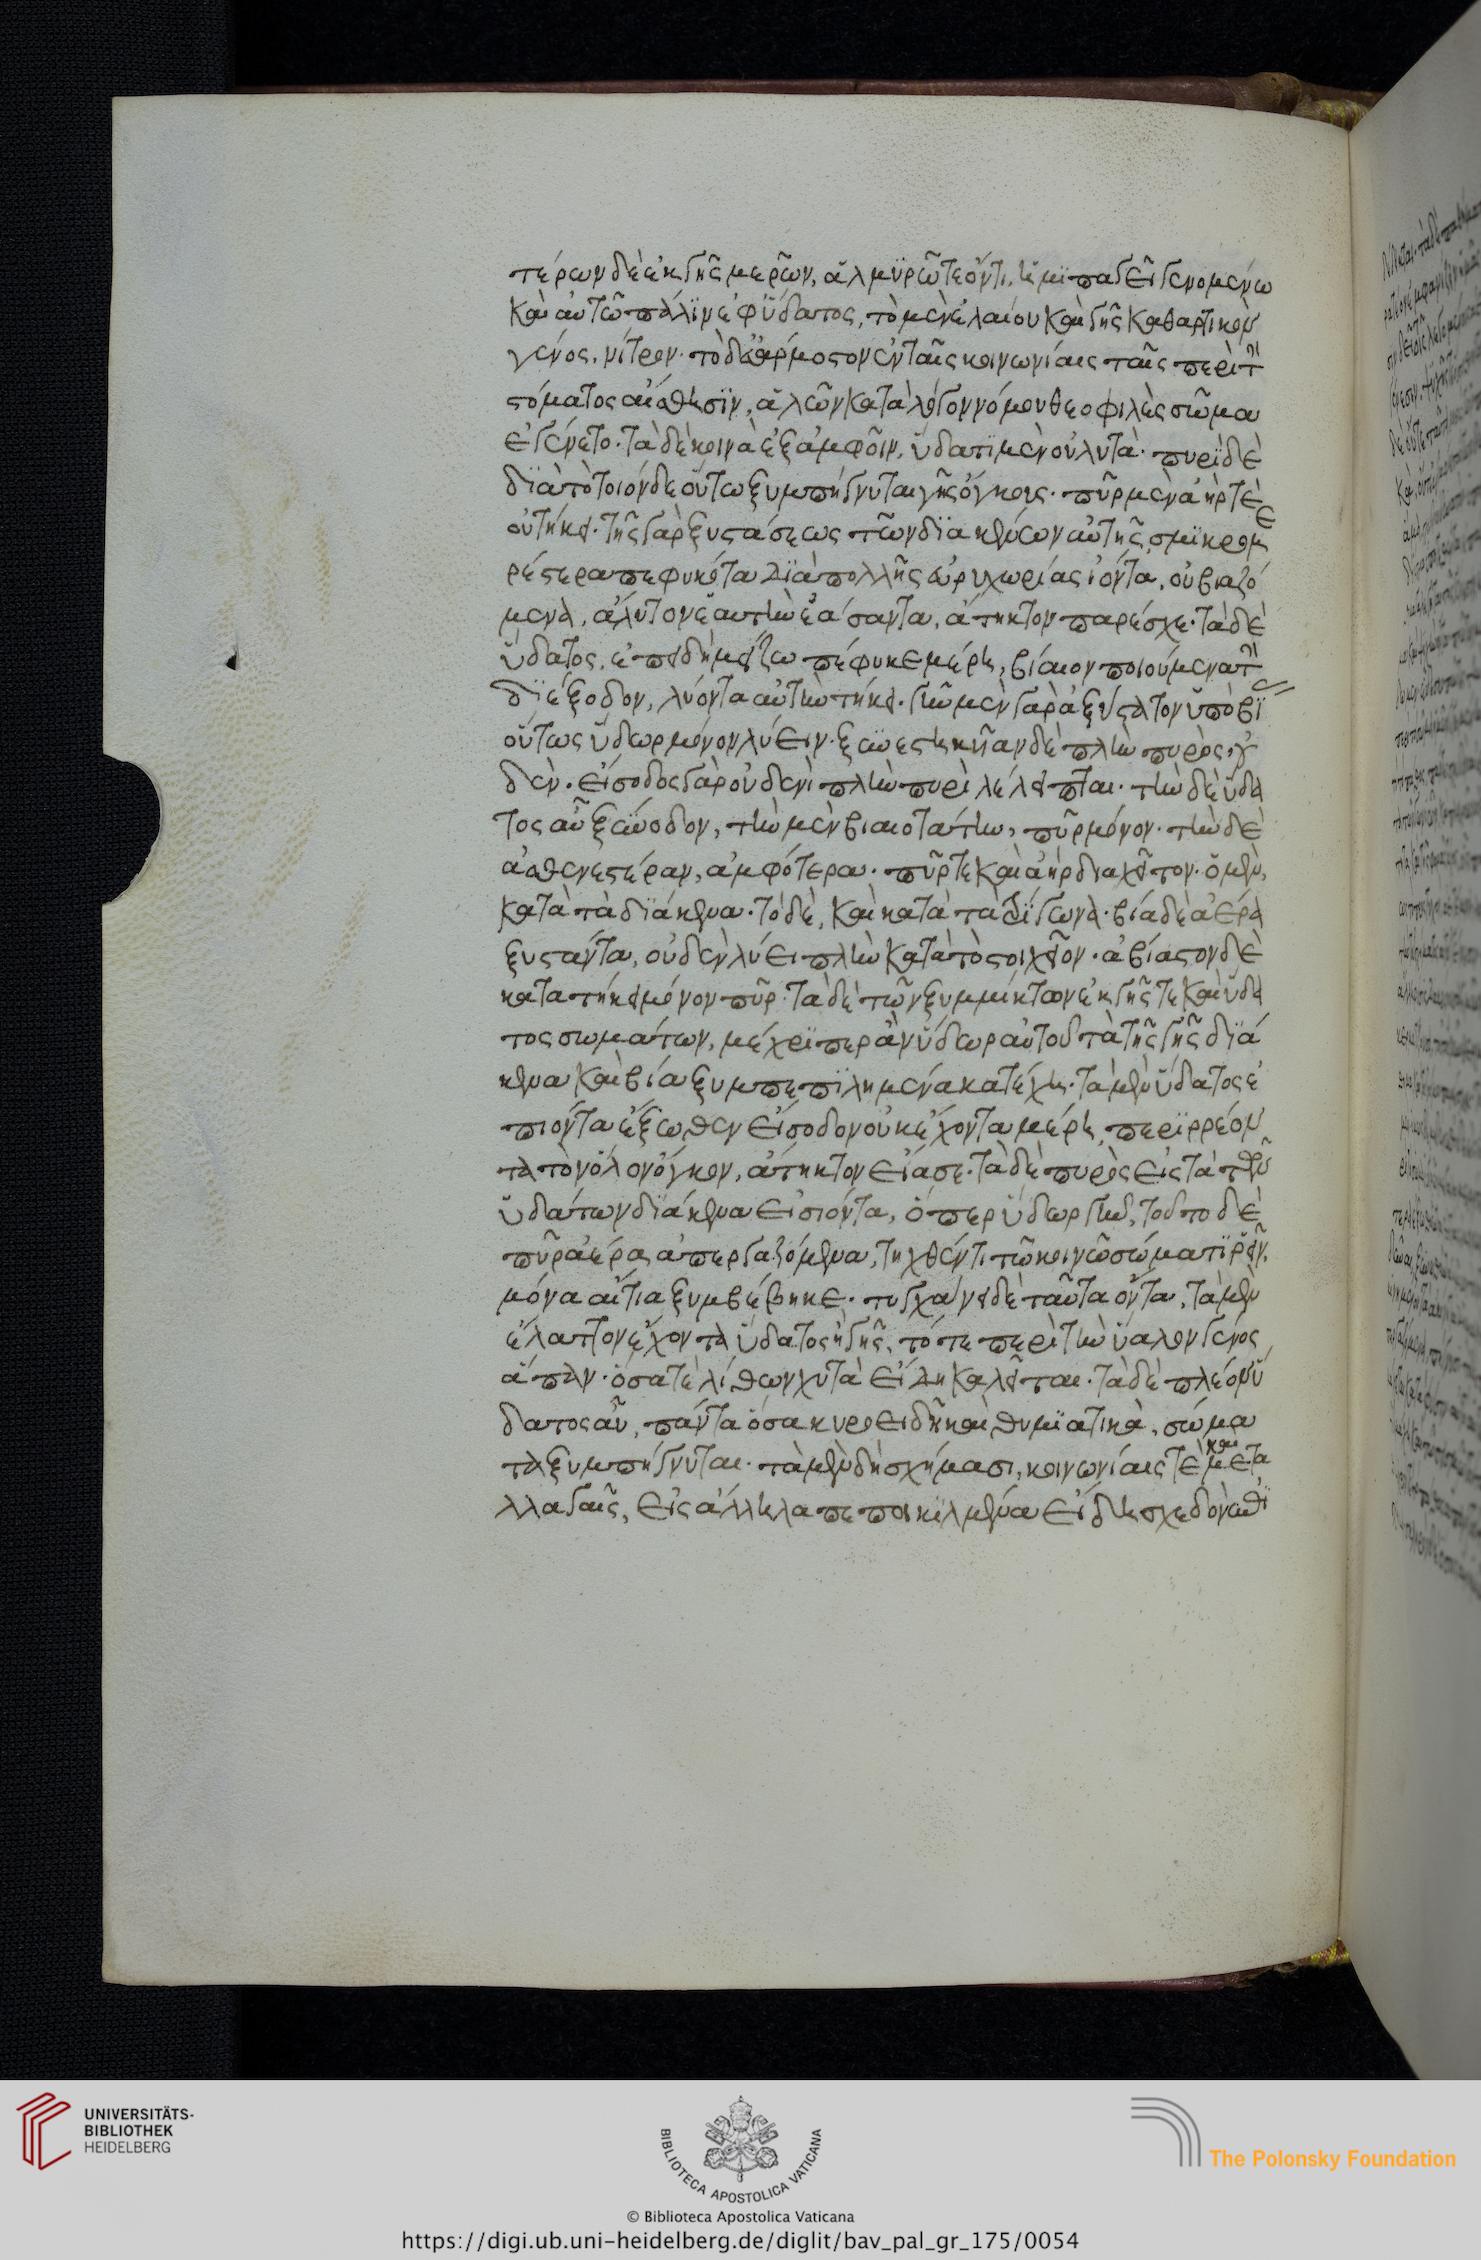 τέρων δὲ ἐκ γῆς μερῶν, ἁλμυρῶ τε ὄντι, ἡμιπαγεῖ γενομένω
καὶ αὐτῶ πάλιν ἐφ ὕδατος, τὸ μὲν ἐλαίου καὶ γῆς καθαρτικὸν
γένος, νίτρον· τὸ δ' εὐάρμοστον ἐν ταῖς κοινωνίαις ταῖς περὶ τὴν
στόματος αἴσθησιν, ἁλῶν κατὰ λόγον νόμου θεοφιλὲς σῶμα
ἐγένετο· τὰ δὲ κοινὰ ἐξ ἀμφοῖν, ὕδατι μὲν οὐ λυτὰ· πυρὶ δὲ
διὰ τὸ τοιόνδε οὕτω ξυμπήγνυται γῆς ὄγκους· πῦρ μὲν ἀήρ τε
οὐ τήκει· τῆς γὰρ ξυστάσεως τῶν διακένων αὐτῆς σμικρομε
ρέστερα πεφυκότα διὰ πολλῆς εὐρυχωρίας ἰόντα, οὐ βιαζό
μενα, ἄλυτον ἑαυτὴν ἐάσαντα, ἄτηκτον παρέσχε· τὰ δὲ
ὕδατος, ἐπειδὴ μείζω πέφυκε μέρη, βίαιον ποιούμενα τὴν
διέξοδον, λύοντα αὐτὴν τήκει· γῆν μὲν γὰρ ἀξύστατον ὑπὸ βίας
οὕτως ὕδωρ μόνον λύειν· ξυνεστηκυῖαν δὲ πλὴν πυρὸς, οὐ
δὲν· εἴσοδος γὰρ οὐδενὶ πλὴν πυρὶ λέλειπται· τὴν δὲ ὕδα
τος αὖ ξύνοδον, τὴν μὲν βιαιοτάτην, πῦρ μόνον· τὴν δὲ
ἀσθενεστέραν, ἀμφότερα· πῦρ τε καὶ ἀὴρ διαχεῖτον· ὁ μὲν,
κατὰ τὰ διάκενα· τὸ δὲ, καὶ κατὰ τὰ τρίγωνα· βία δὲ ἀέρα
ξυστάντα, οὐδὲν λύει πλὴν κατὰ τὸ στοιχεῖον· ἀβίαστον δὲ
κατατήκει μόνον πῦρ· τὰ δὲ τῶν ξυμμίκτων ἐκ γῆς τε καὶ ὕδα
τος σωμάτων, μέχρι περ ἂν ὕδωρ αὐτοῦ τὰ τῆς γῆς διά
κενα καὶ βία ξυμπεπιλημένα κατέχη· τὰ μὲν ὕδατος ἐ
πιόντα ἔξωθεν εἴσοδον οὐκ ἔχοντα μέρη, περιρρέον
τα τὸν ὅλον ὄγκον, ἄτηκτον εἴασε· τὰ δὲ πυρὸς εἰς τὰ τῶν
ὑδάτων διάκενα εἰσιόντα, ὅπερ ὕδωρ γῆν, τοῦτο δὲ
πῦρ ἀέρα ἀπεργαζόμενα, τηχθέντι τῶ κοινῶ σώματι ῥεῖν,
μόνα αἴτια ξυμβέβηκε· τυγχάνει δὲ ταῦτα ὄντα, τὰ μὲν
ἔλαττον ἔχοντα ὕδατος ἢ γῆς, τό τε περὶ τὴν ὕαλον γένος
ἅπαν· ὅσα τε λίθων χυτὰ εἴδη καλεῖται· τὰ δὲ πλέον ὕ
δατος αὖ, πάντα ὅσα κυροειδῆ καὶ θυμιατικὰ, σώμα
τα ξυμπήγνυται· τὰ μὲν δὴ σχήμασι, κοινωνίαις τὲ καὶ μετα
λλαγαῖς, εἰς ἄλληλα πεποικιλμένα εἴδη σχεδὸν ἐπι
UNIVERSITÄTS-
BIBLIOTHEK
HEIDELBERG
BIBLIOTECA APOSTOLICA VATICANA
The Polonsky Foundation
© Biblioteca Apostolica Vaticana
https://digi.ub.uni-heidelberg.de/diglit/bav_pal_gr_175/0054